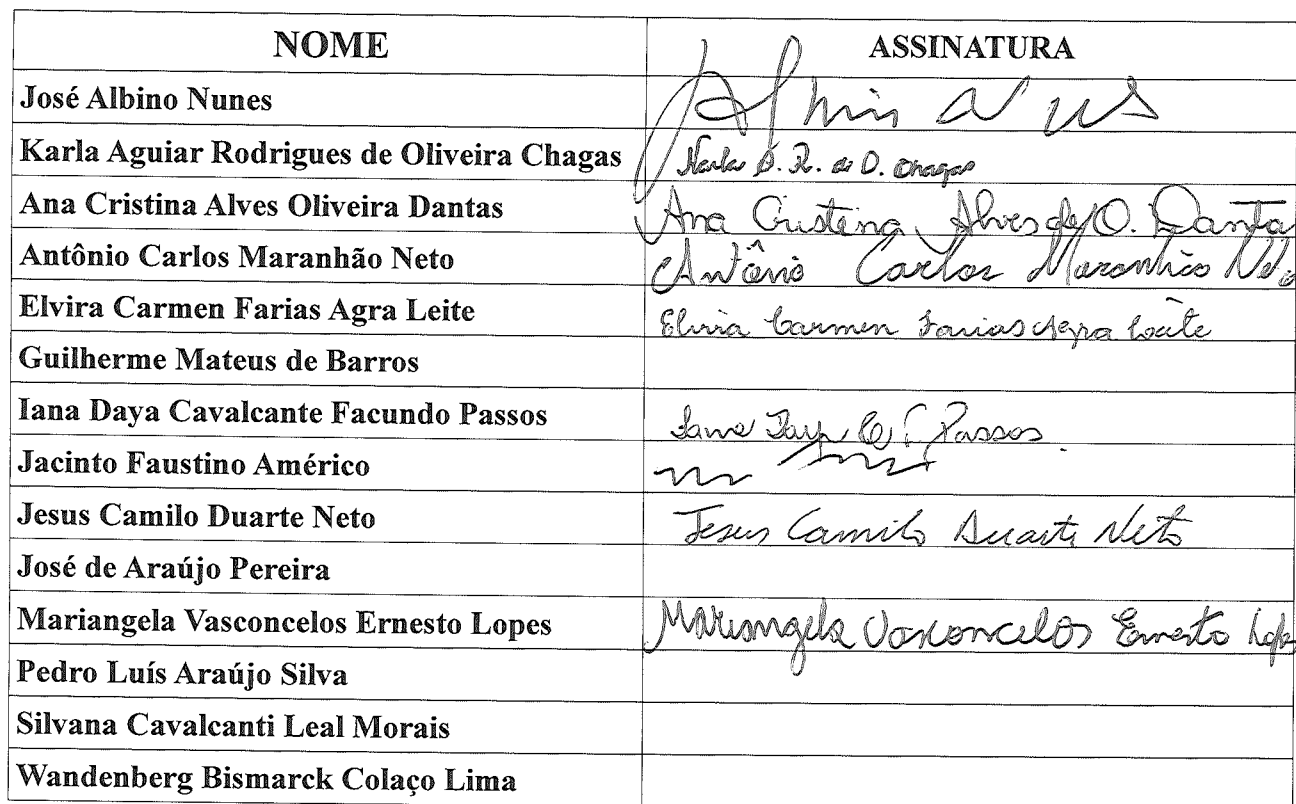 NOME ASSINATURA
José Albino Nunes
Karla Aguiar Rodrigues de Oliveira Chagas Karla A. R. de O. Chagas
Ana Cristina Alves Oliveira Dantas Ana Cristina Alves de O. Danta
Antônio Carlos Maranhão Neto Antônio Carlos Maranhão Neto
Elvira Carmen Farias Agra Leite Elvira Carmen Farias Agra Leite
Guilherme Mateus de Barros
Iana Daya Cavalcante Facundo Passos Iana Daya C. F. Passos
Jacinto Faustino Américo
Jesus Camilo Duarte Neto Jesus Camilo Duarte Neto
José de Araújo Pereira
Mariangela Vasconcelos Ernesto Lopes Mariangela Vasconcelos Ernesto Lopes
Pedro Luís Araújo Silva
Silvana Cavalcanti Leal Morais
Wandenberg Bismarck Colaço Lima